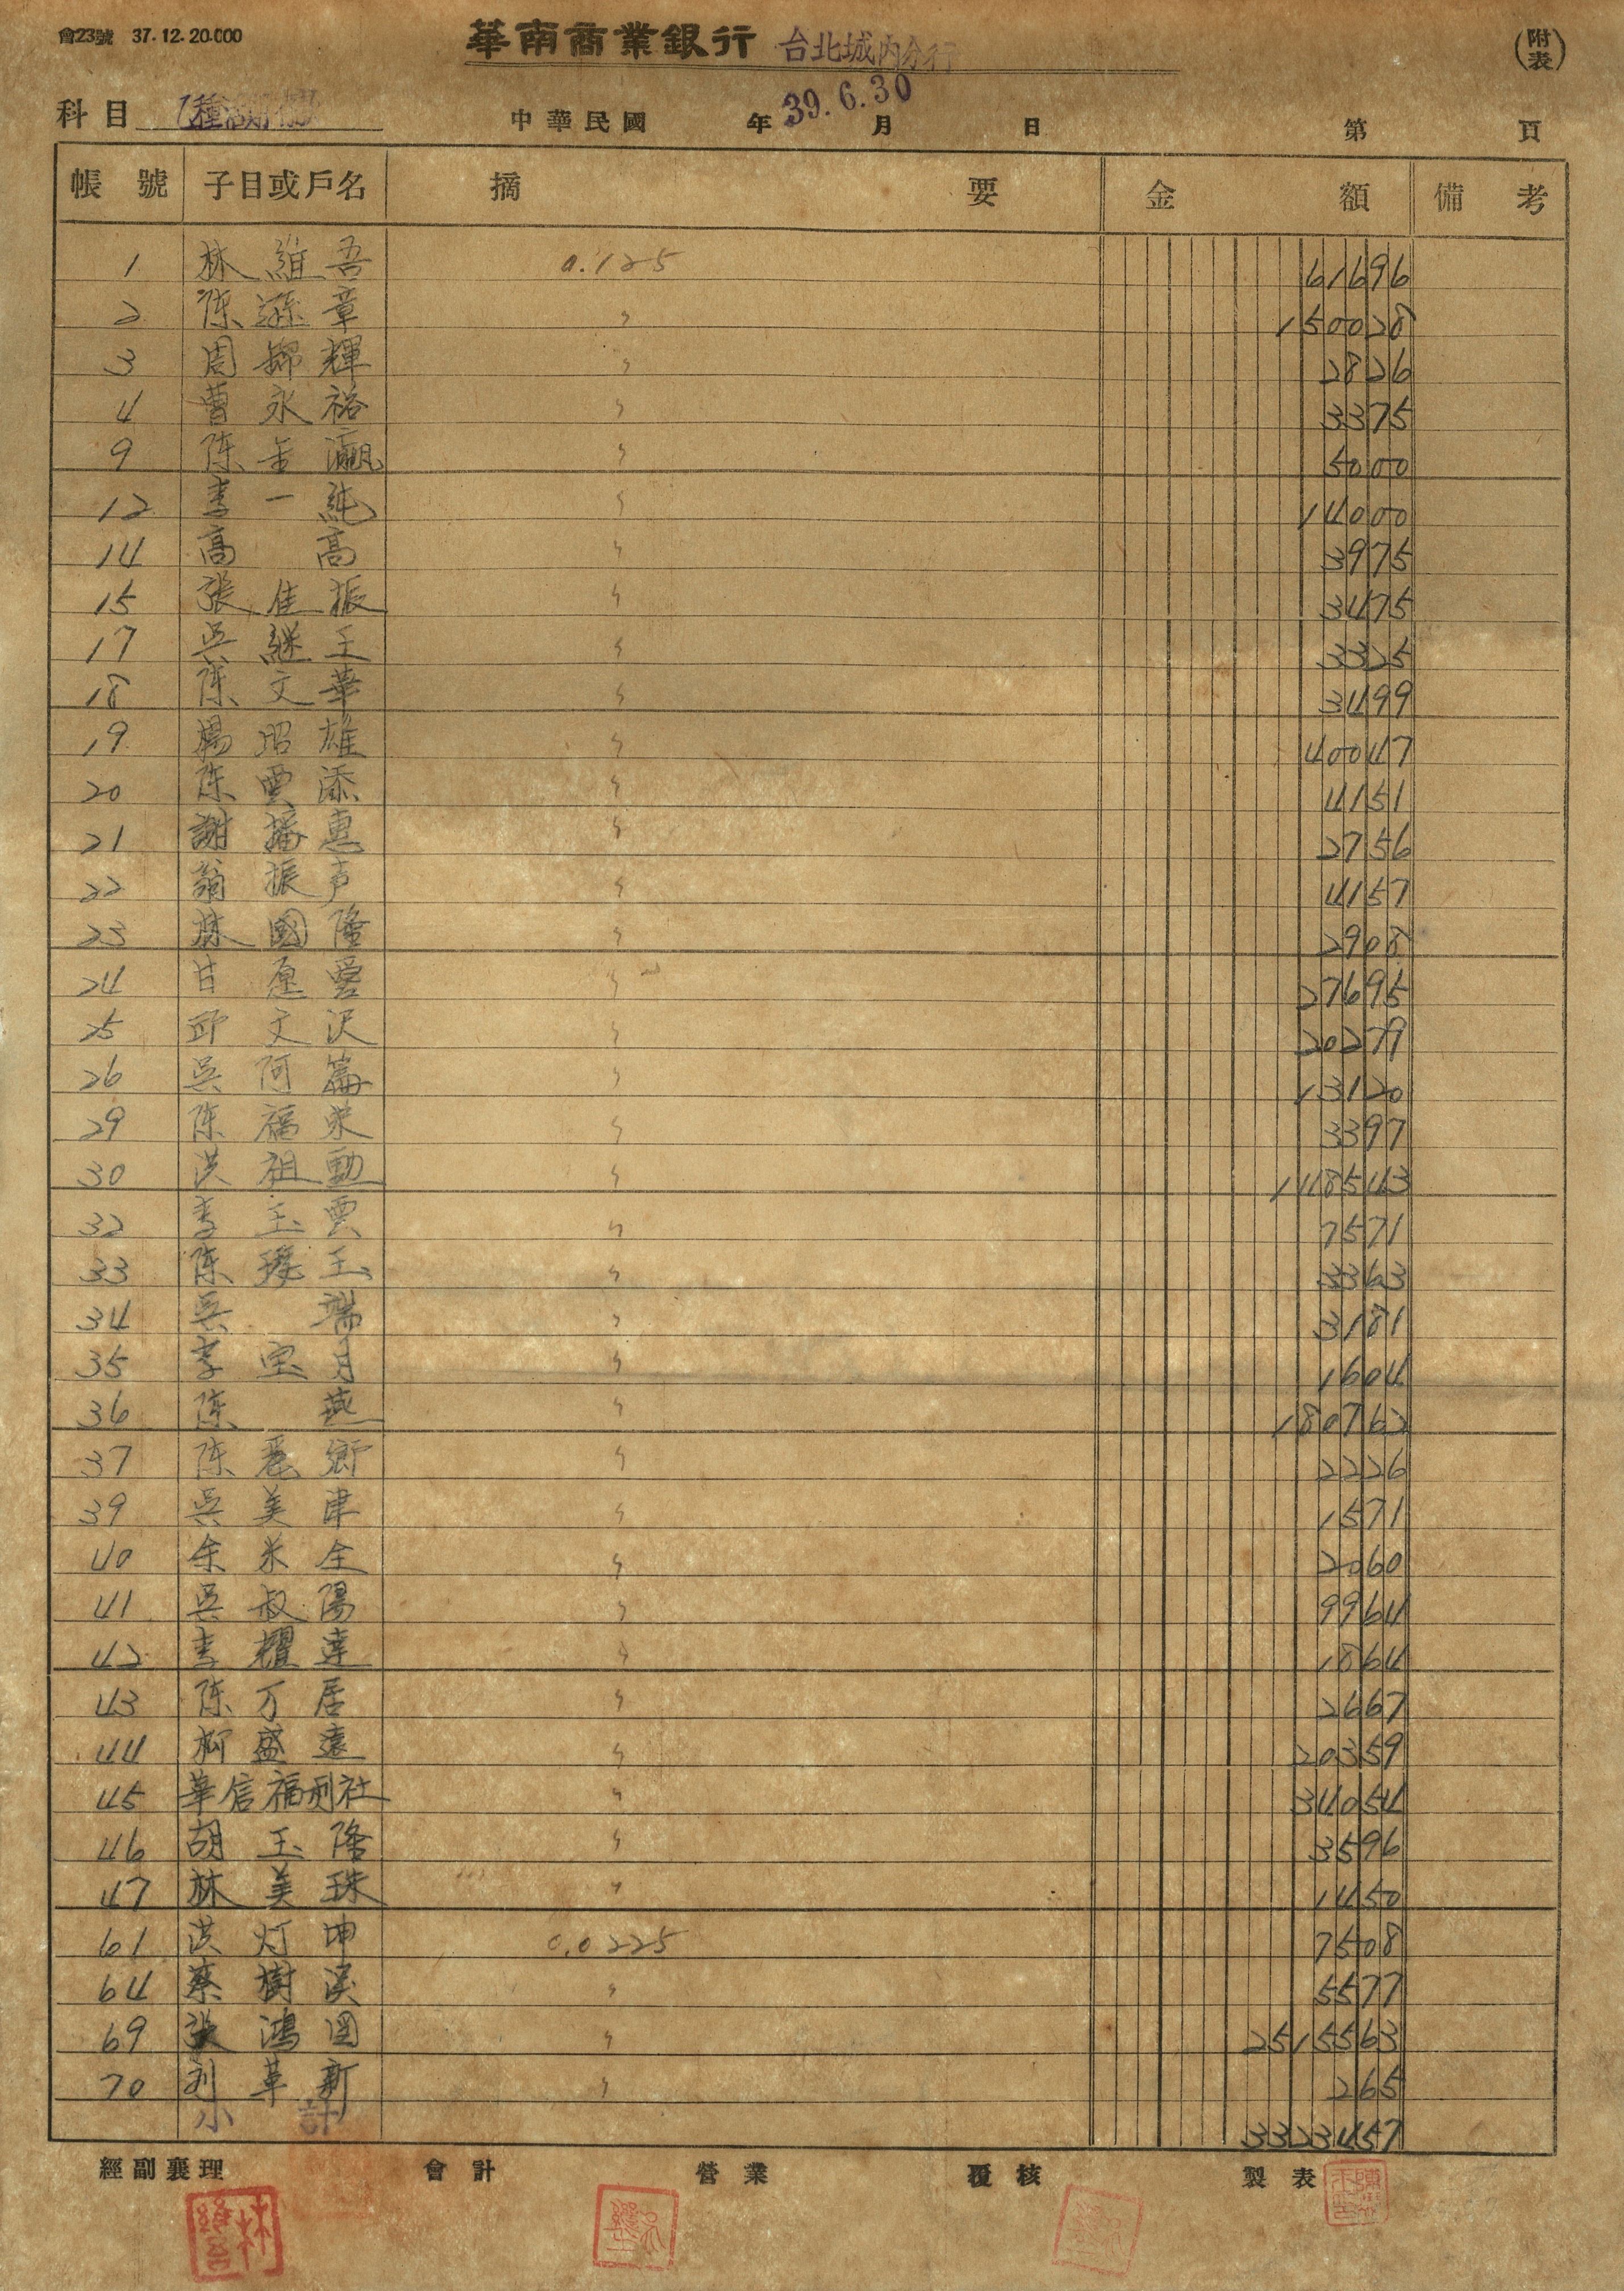 會23號 37.12.20.000
華南商業銀行 台北城內分行
(附表)
科目 乙種活期存款
中華民國 年 月 日 39.6.30
第 頁
帳號 子目或戶名 摘要 金額 備考
1 林維吾 0.125 61696
2 陈遜章 〃 150028
3 周錦輝 〃 2826
4 曹永裕 〃 3375
9 陈金瀛 〃 5000
12 李一純 〃 14000
14 高 高 〃 3975
15 張佳振 〃 3475
17 吳継王 〃 3325
18 陈文華 〃 3499
19 楊昭雄 〃 40047
20 陈雲添 〃 4151
21 謝播惠 〃 2756
22 翁振声 〃 4157
23 林國隆 〃 2908
24 甘 愛 〃 27695
25 邱文沢 〃 20279
26 吳阿篇 〃 13120
29 陈福来 〃 3397
30 洪祖勳 〃 148543
32 李玉雲 〃 7571
33 陈璦玉 〃 3363
34 吳 端 〃 3181
35 李宝月 〃 1604
36 陈 燕 〃 180762
37 陈麗卿 〃 2226
39 吳美津 〃 1571
40 余米全 〃 2060
41 吳叔陽 〃 9964
42 李耀達 〃 1864
43 陈万居 〃 2667
44 柳盛遠 〃 20359
45 華信福利社 〃 34054
46 胡玉隆 〃 3596
47 林美珠 〃 1450
61 洪灯坤 0.0225 7508
64 蔡樹溪 〃 5577
69 張鴻図 〃 2515563
70 利革新 〃 265
小計 3323457
經副襄理 會計 營業 覆核 製表
林維吾